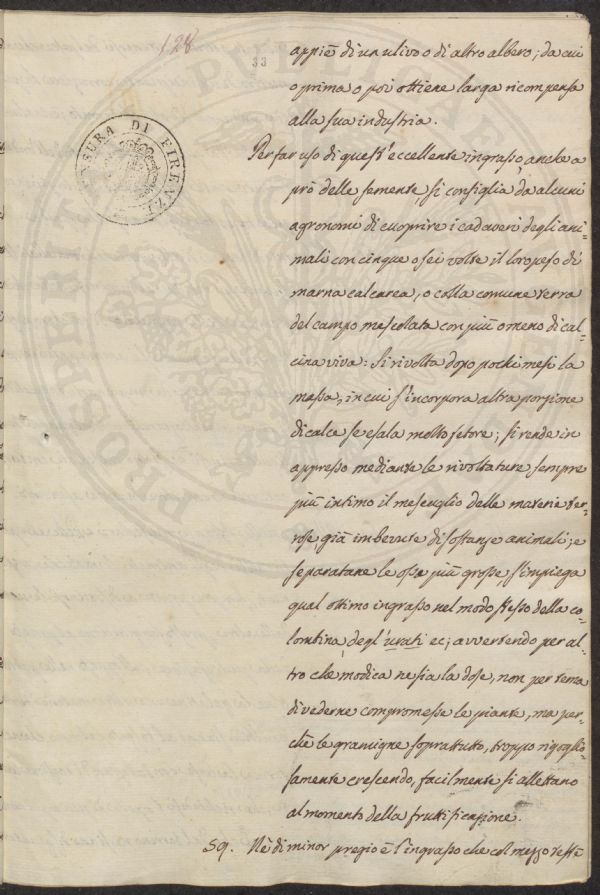 128
33
appiè di un ulivo o di altro albero; da cui
o prima o poi ottiene larga ricompensa
alla sua industria.
CENSURA DI FIRENZE
Per far uso di quest'eccellente ingrasso, anche a
prò delle semente, si consiglia da alcuni
agronomi di cuoprire i cadaveri degli ani-
mali con cinque o sei volte il loro peso di
marna calcarea, o colla comune terra
del campo mescolata con più o meno di cal-
cina viva: Si rivolta dopo pochi mesi la
massa, in cui s'incorpora altra porzione
di calce se esala molto fetore; si rende in
appresso mediante le rivoltature sempre
più intimo il mescuglio delle materie ter-
rose, già imbevute di sostanze animali; e
separatane le ossa più grosse, s'impiega
qual ottimo ingrasso nel modo stesso della co-
lombina, degl'urati ec; avvertendo per al-
tro che modica ne sia la dose, non per tema
di vederne compromesse le piante, ma per-
chè le gramigne soprattutto, troppo rigoglio-
samente crescendo, facilmente si allettano
al momento della fruttificazione.
59. Nè di minor pregio è l'ingrasso che col mezzo testè